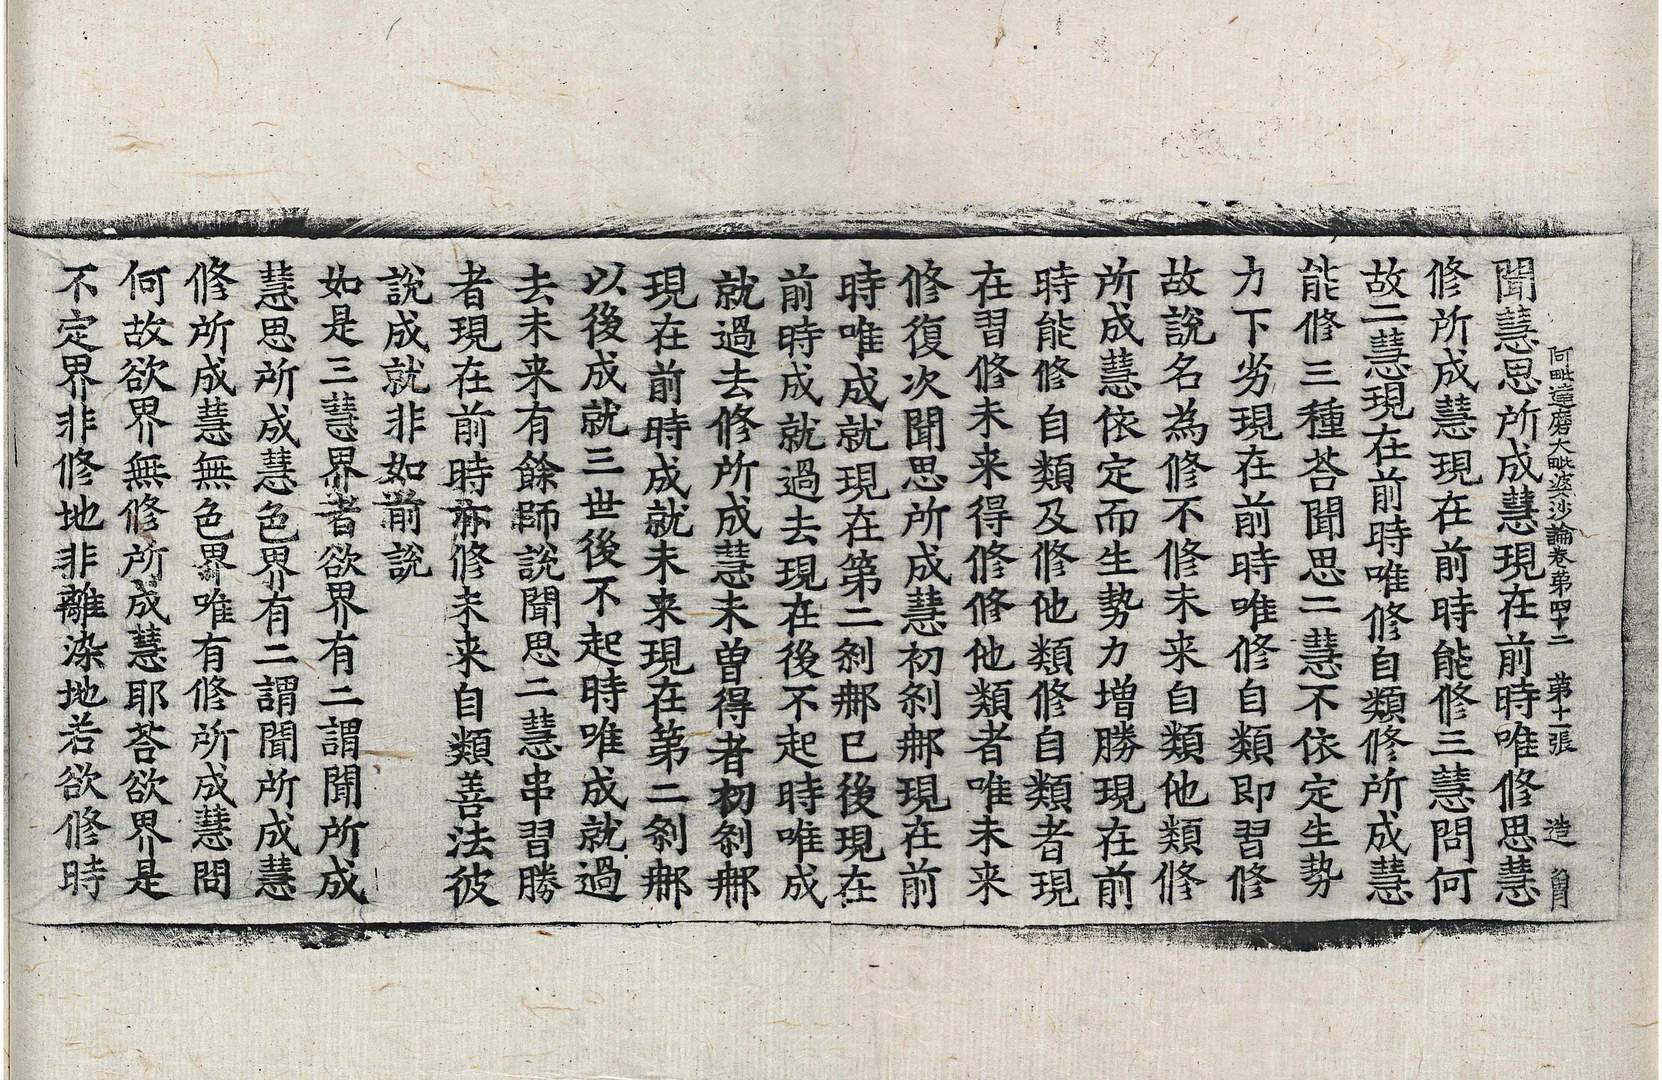 阿毗達磨大毗婆沙論卷第四十二 第十一張 造
聞慧思所成慧現在前時唯修思慧
修所成慧現在前時能修三慧問何
故二慧現在前時唯修自類修所成慧
能修三種荅聞思二慧不依定生勢
力下劣現在前時唯修自類即習修
故說名為修不修未來自類他類修
所成慧依定而生勢力增勝現在前
時能修自類及修他類修自類者現
在習修未来得修修他類者唯未来
修復次聞思所成慧初剎那現在前
時唯成就現在第二剎那已後現在
前時成就過去現在後不起時唯成
就過去修所成慧未曾得者初剎那
現在前時成就未来現在第二剎那
以後成就三世後不起時唯成就過
去未来有餘師說聞思二慧串習勝
者現在前時亦修未来自類善法彼
說成就非如前說
如是三慧界者欲界有二謂聞所成
慧思所成慧色界有二謂聞所成慧
修所成慧無色界唯有修所成慧問
何故欲界無修所成慧耶荅欲界是
不定界非修地非離染地若欲修時